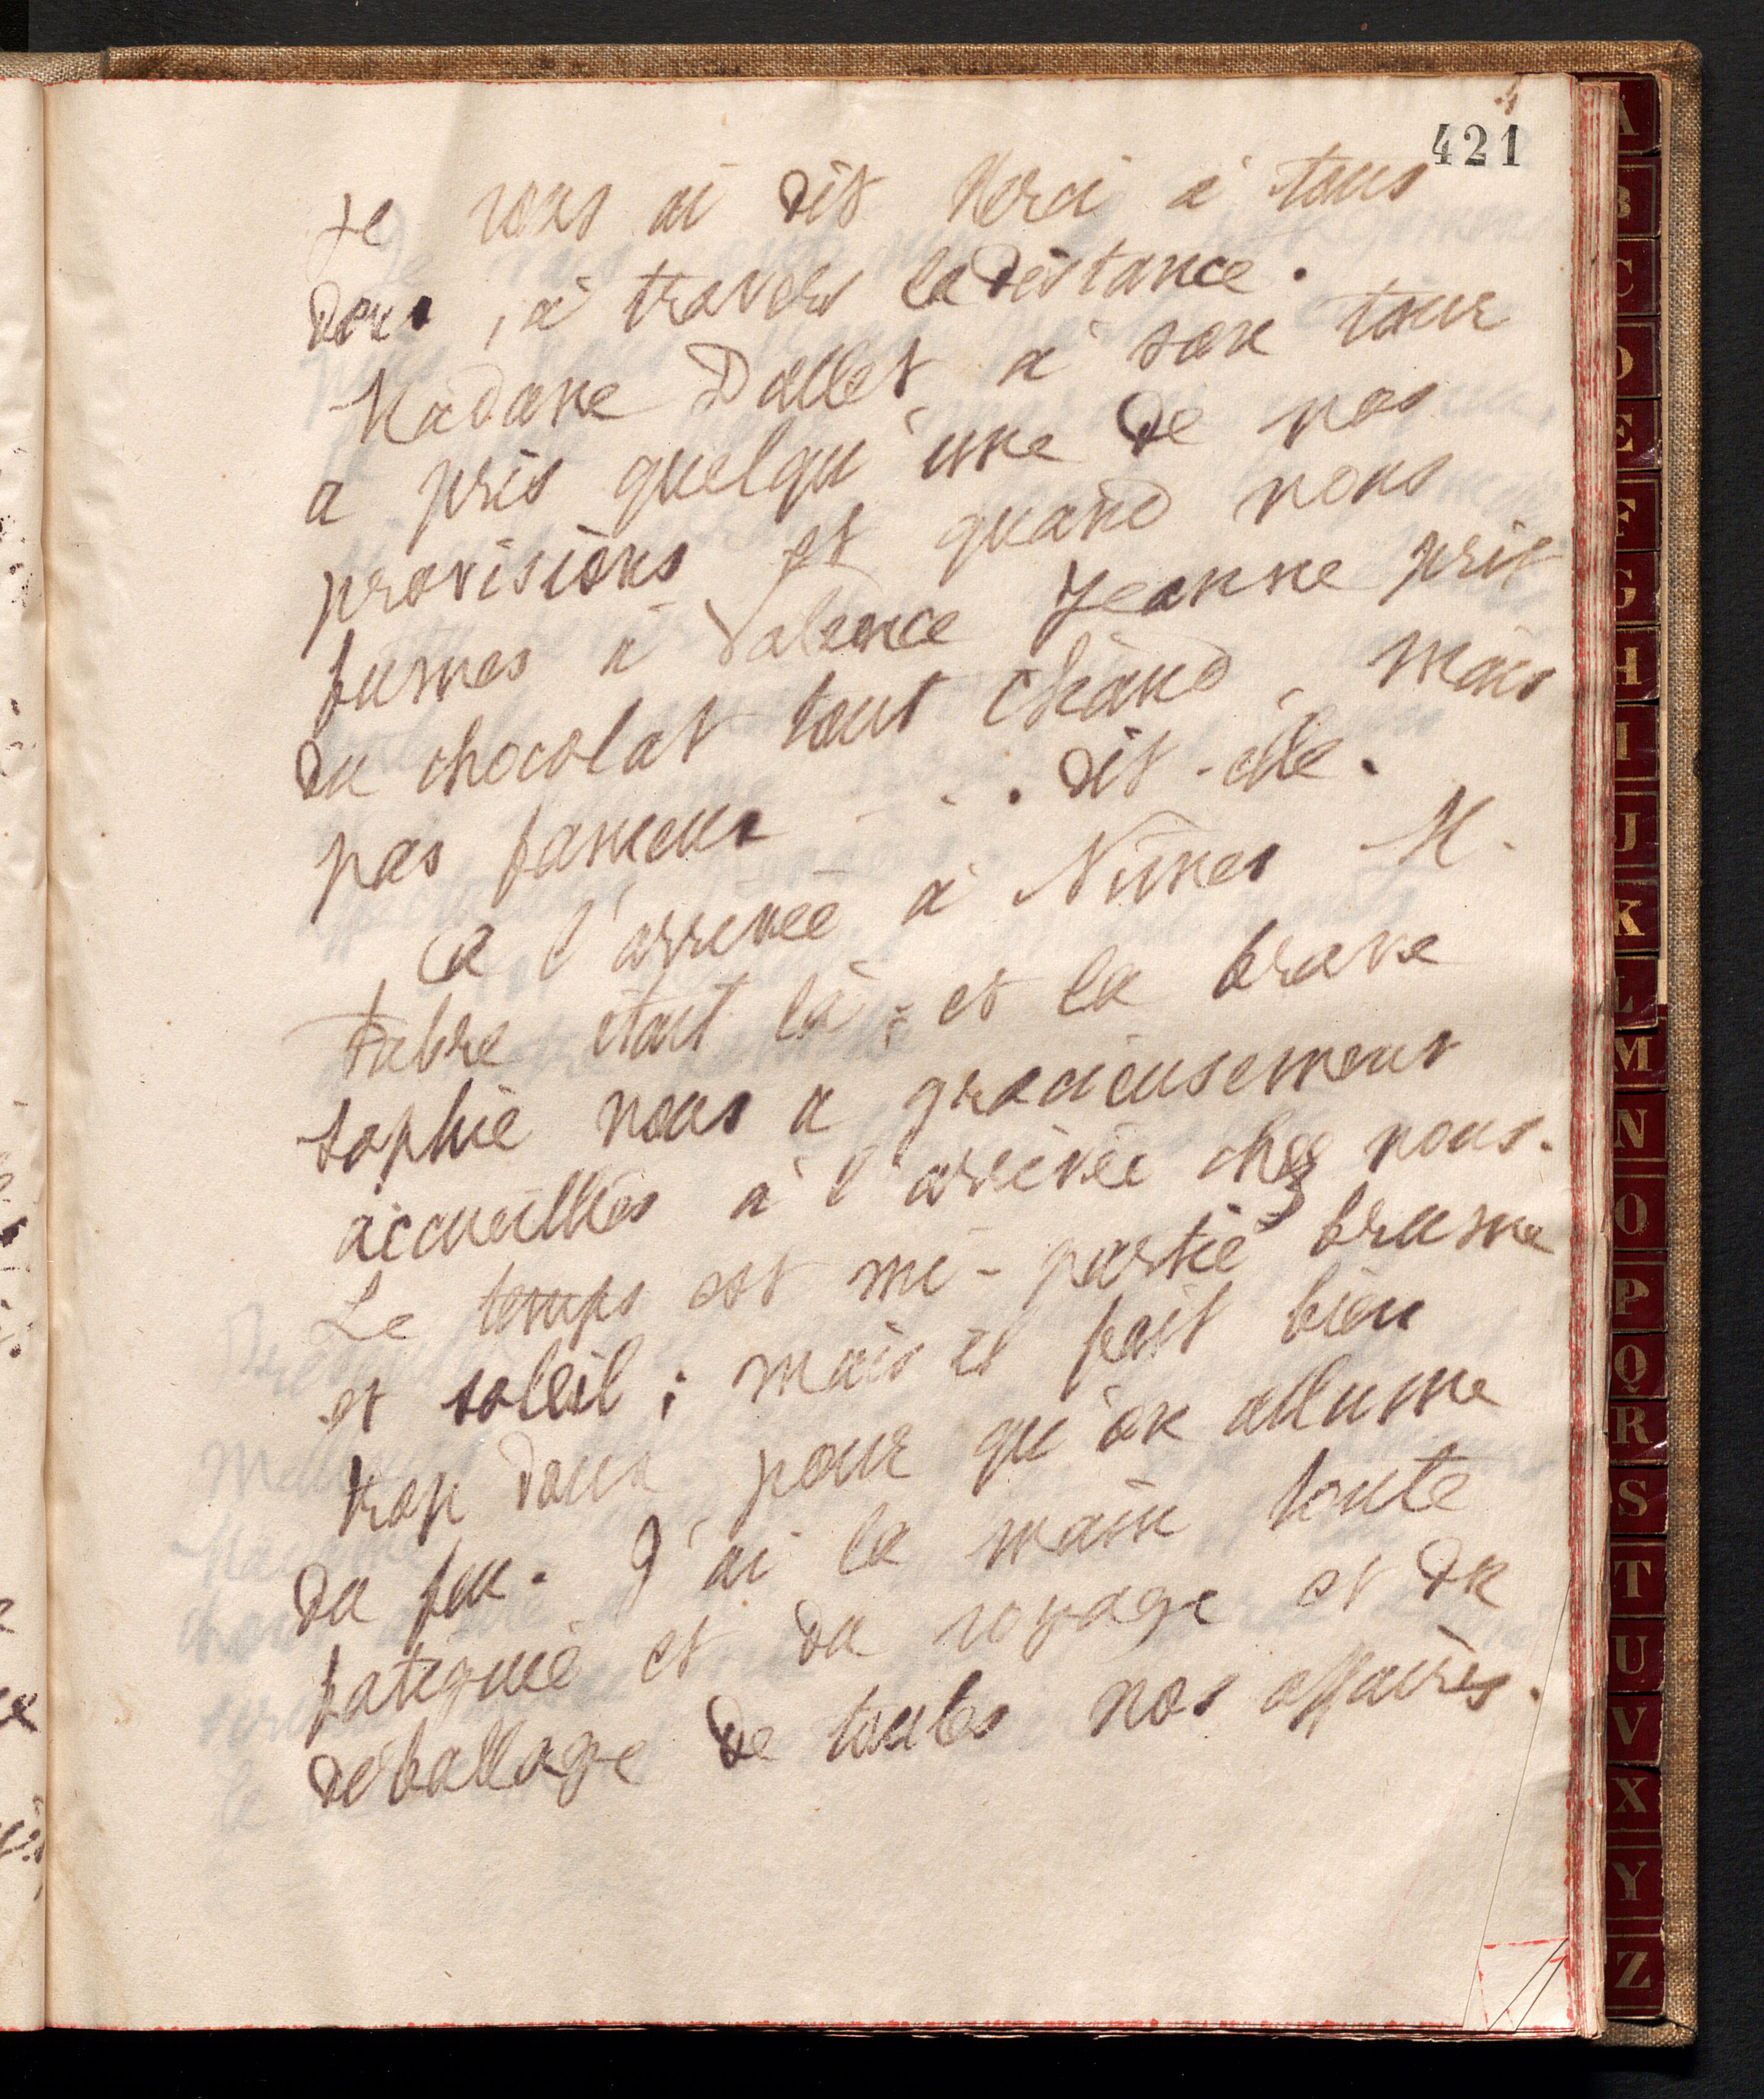 421
Je vous ai dit Merci à tous
deux, à travers la distance.
Madame Dallet à son tour
a pris quelqu'une de nos
provisions et quand nous
fumes à Valence Jeanne prit
du chocolat tout chaud, mais
pas fameux . . . dit-elle.
A l'arrivée à Nîmes M.
Fabre était là ; et la brave
Sophie nous a gracieusement
accueillies à l'arrivée chez nous.
Le temps est mi-partie brume
et soleil ; mais il fait bien
trop doux pour qu'on allume
du feu. J'ai la main toute
fatiguée et du voyage et du
déballage de toutes nos affaires.
A
B
C
D
E
F
G
H
I
J
K
L
M
N
O
P
Q
R
S
T
U
V
X
Y
Z